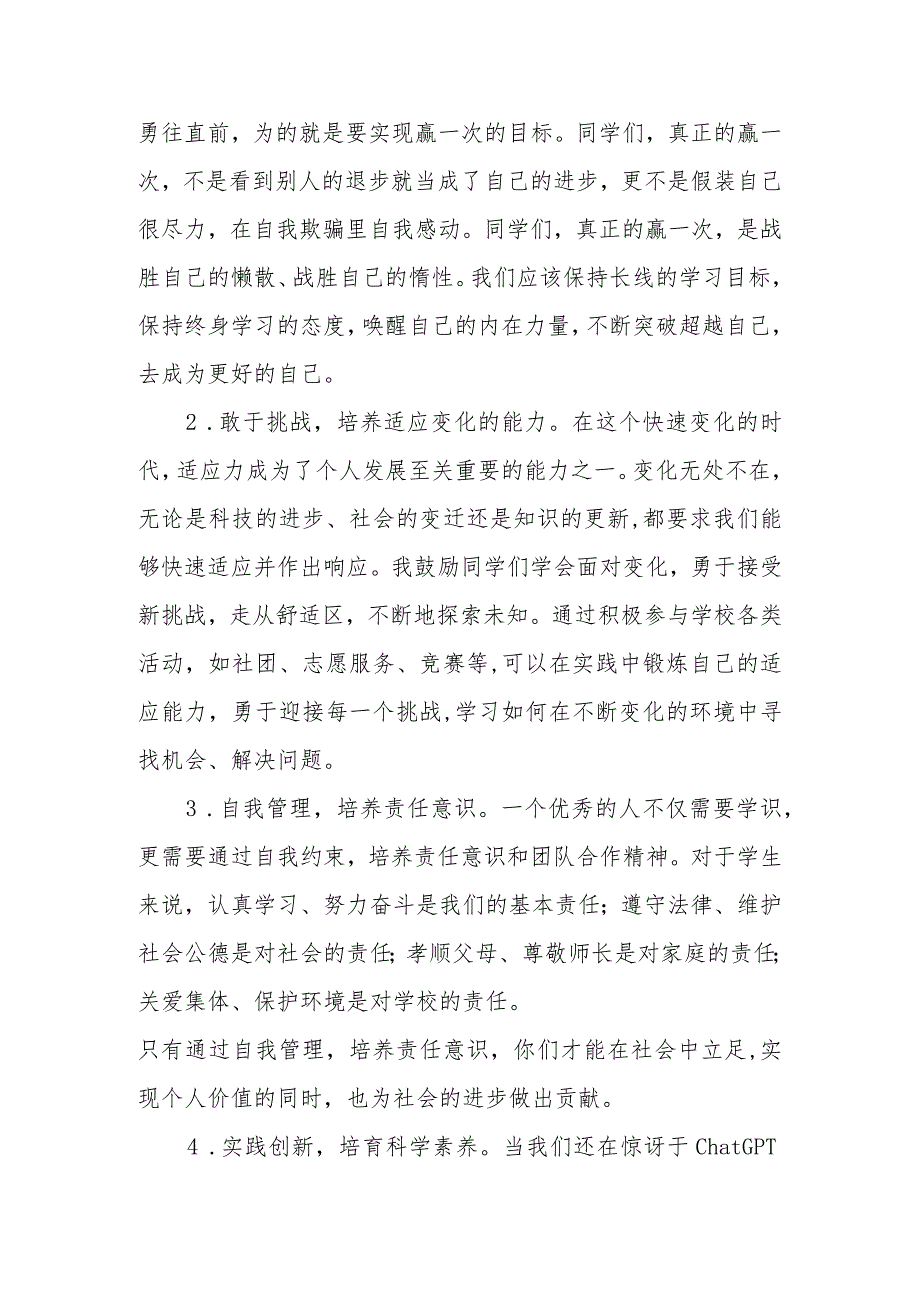 勇往直前，为的就是要实现赢一次的目标。同学们，真正的赢一
次，不是看到别人的退步就当成了自己的进步，更不是假装自己
很尽力，在自我欺骗里自我感动。同学们，真正的赢一次，是战
胜自己的懒散、战胜自己的惰性。我们应该保持长线的学习目标，
保持终身学习的态度，唤醒自己的内在力量，不断突破超越自己，
去成为更好的自己。
2.敢于挑战，培养适应变化的能力。在这个快速变化的时
代，适应力成为了个人发展至关重要的能力之一。变化无处不在，
无论是科技的进步、社会的变迁还是知识的更新,都要求我们能
够快速适应并作出响应。我鼓励同学们学会面对变化，勇于接受
新挑战，走从舒适区，不断地探索未知。通过积极参与学校各类
活动，如社团、志愿服务、竞赛等,可以在实践中锻炼自己的适
应能力，勇于迎接每一个挑战,学习如何在不断变化的环境中寻
找机会、解决问题。
3.自我管理，培养责任意识。一个优秀的人不仅需要学识，
更需要通过自我约束，培养责任意识和团队合作精神。对于学生
来说，认真学习、努力奋斗是我们的基本责任；遵守法律、维护
社会公德是对社会的责任；孝顺父母、尊敬师长是对家庭的责任；
关爱集体、保护环境是对学校的责任。
只有通过自我管理，培养责任意识，你们才能在社会中立足,实
现个人价值的同时，也为社会的进步做出贡献。
4.实践创新，培育科学素养。当我们还在惊讶于 ChatGPT